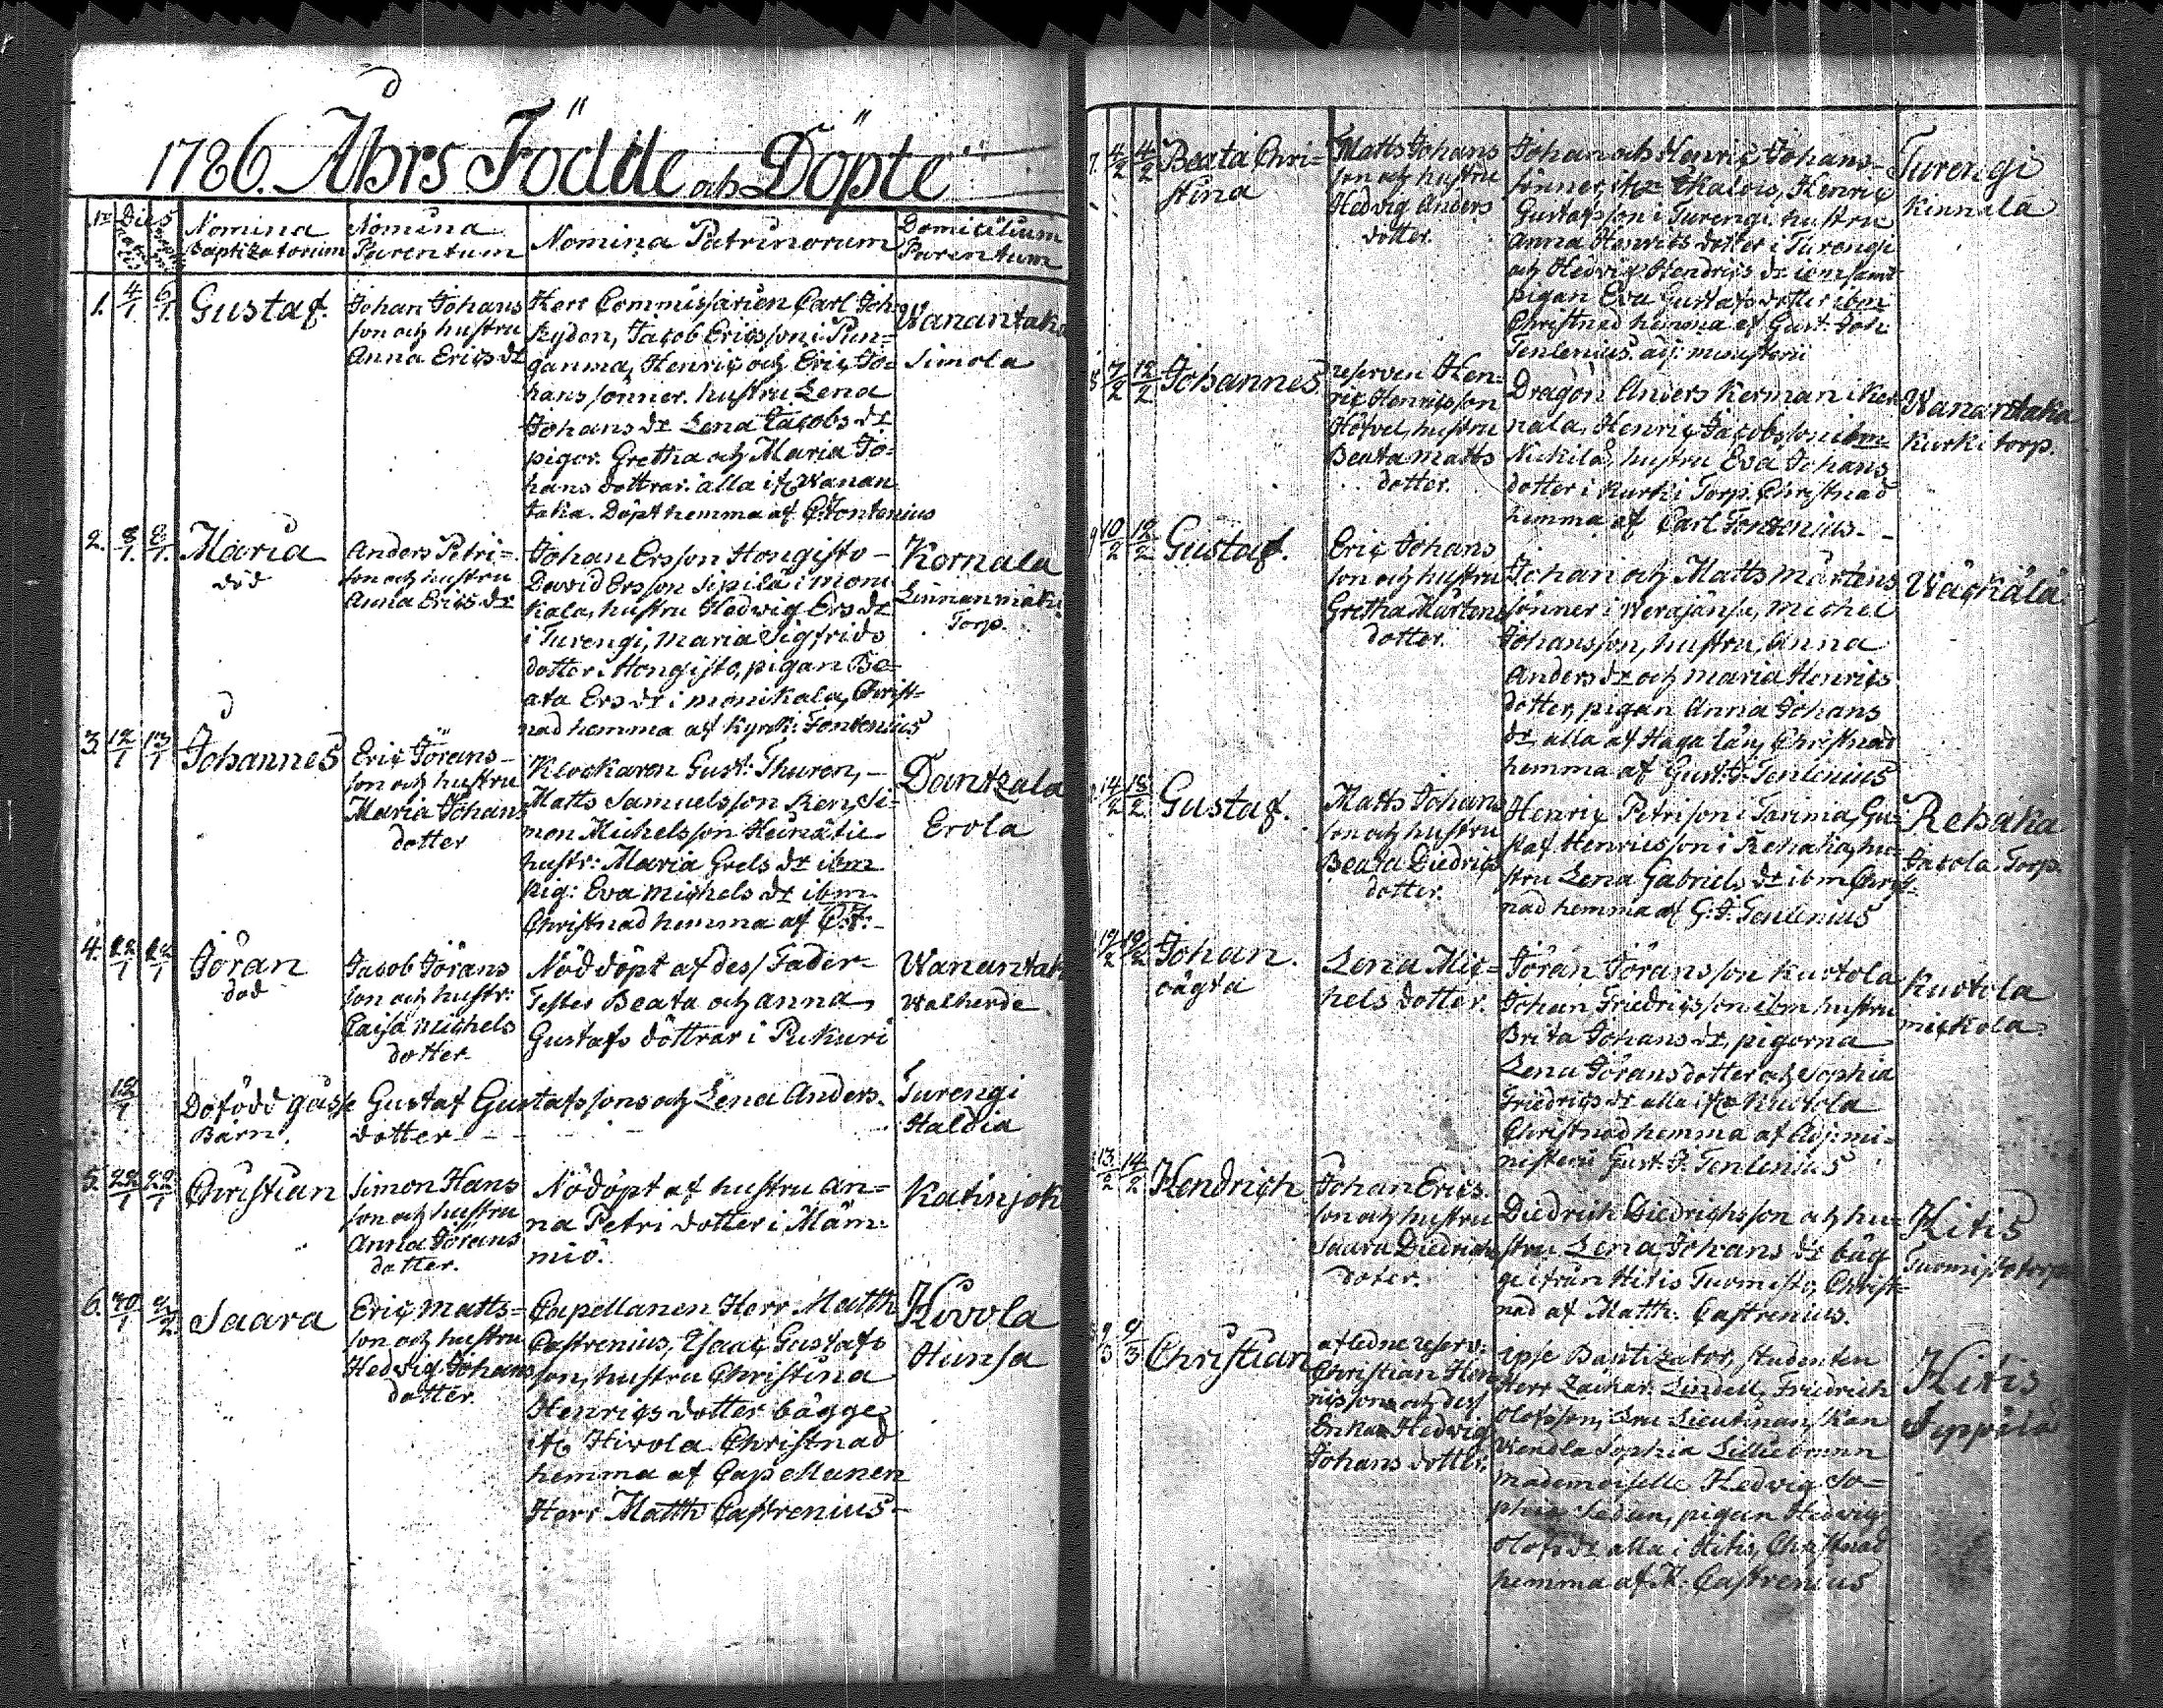 1786. Åhrs Födde och Döpte
Dies
Nomina Baptizatorum
Nomina Parentum
Nomina Patrinorum
Domicilium Parentum
1. 4/1 6/1 Gustaf.
Johan Johans
son och hustru
Anna Erics dr
Herr Commissarien Carl Joh
Rydon, Jacob Ericsson i Pun-
ganma, Henric och Eric Jo-
hanssönner. hustru Lena
Johans dr Lena Jacobs dr
pigor. Gretha och Maria Jo-
hans dottrar. alla ifr Wanan
taka. Döpt hemma af C. Fontenius
Wanantaka
Simola
2. 8/1 8/1 Maria
död
Anders Petri-
son och hustru
Anna Erics dr
Johan Ersson Hongisto
David Ersson Sipilä i moni
kala, hustru Hedwig Ers dr
i Turengi, Maria Sigfrids
dotter i Hongisto, pigan Be-
ata Ers dr i monikala, Christ-
nad hemma af Kyrk: Fontenius
Kernala
Linnanmäki
Torp.
3. 12/1 13/1 Johannes
Eric Görans-
son och hustru
Maria Johans
dotter
Klockaren Gust: Thuren,
Matts Samuelsson Ken, Si-
mon Michelsson
hustr: Maria Grels dr ibm
Pig: Eva Michels dr ibm.
Christnad hemma af C. F:
Dantzala
Erola
4. Jöran
död
Jacob Jörans
son och hustr:
Caisa Michels
dotter
Nöddöpt af dess Fader-
Beata och Anna
Gustafs döttrar i Pukuri
Wanantak
Walherde
18/1 Döfödd gåsse
Barn.
Gustaf Gustafssons och Lena Anders-
dotter
Turengi
Haldia
5. Christian
Simon Hans
son och hustru
Anna Jörans
dotter.
Nödöpt af hustru An-
na Petri dotter i Mäm-
miö.
Katinjok
6. 30/1 Saara
Eric Matts-
son och hustru
Hedvig Johans
dotter.
Capellanen Herr Matth
Castrenius, Isaac Gustafs
son, hustru Christina
Henrics dotter bägge
ifr Hivola. Christnad
hemma af Capellanen
Herr Matth Castrenius
Hivola
Hunsa
7. 4/2 4/2 Beata Chri-
stina
Matts Johans
son och hustru
Hedvig Anders
dotter.
Johan och Henric Johans-
sönner, Henric
Gustafsson i Turengi hustru
Anna Henrics dotter i Turengi
och Hedvig Hendrics dr ibm samt
pigan Eva Gustafs dotter ibm
Christnad hemma af Gust. Joh
Tenlenius. adj: ministerii
Turengi
Kinnala
8 7/2 12/2 Johannes
reserven Hen-
ric Henricsson
hustru
Beata Matts
dotter.
Dragon Anders Kerman i Ker
nala, Henric Jacobsson ibm
Nickilä, hustru Eva Johans
dotter i Kurki Torp. Christnad
hemma af Carl Fontenius.
Wanantaka
Kurki torp.
9 10/2 12/2 Gustaf.
Eric Johans
son och hustru
Gretha Mårtens
dotter.
Johan och Matts Mårtens
sönner i Werajänsu, Michel
Johansson, hustru, Anna
Anders dr och Maria Henrics
dotter, pigan Anna Johans
dr, alla af Haga län, Christnad
hemma af Gust. J. Tenlenius
Wäckälä
14/2 15/2 Gustaf.
Matts Johans
son och hustru
Beata Diedrics
dotter.
Henric Petrison i Tarima, Gu-
staf Henricsson i Rehaka, hu-
stru Lena Gabriels dr ibm Christ-
nad hemma af G: J. Tenlenius
Rehaka
Jacola Torp.
Johan.
oägta
Lena Mic-
hels dotter.
Jöran Jöransson Kuotola
Johan Friedricsson ibm hustru
Brita Johans dr, pigorna
Lena Jörans dotter och Sophia
Friedrics dr alla ifr Kuotola
Christnad hemma af Adj: mi-
nisterii Gust. J. Tenlenius
Kuotola
mickola
13/2 14/2 Hendrich
Johan Erics
son och hustru
Saara Diedrichs
doter.
Diedrich Diedrichsson och hu-
stru Lena Johans dr bäg
ge ifrån Hitis Tuomisto, Christ-
nad af Matth. Castrenius.
Hitis
Tuomisto torp
9/3 9/3 Christian
afledne reserv:
Christian Hen
ricsson och dess
Enka Hedvig
Johans dotter.
ipse Baptizator, studenten
Herr Zachar. Lindell, Friedrich
Olofsson, Fru Lieutnanskan
Wendla Sophia Lilliebrunn
Mademoiselle Hedvig So-
phia pigan Hedvig
Olofs dr alla i Hitis, Christnad
hemma af M. Castrenius
Hitis
Seppälä